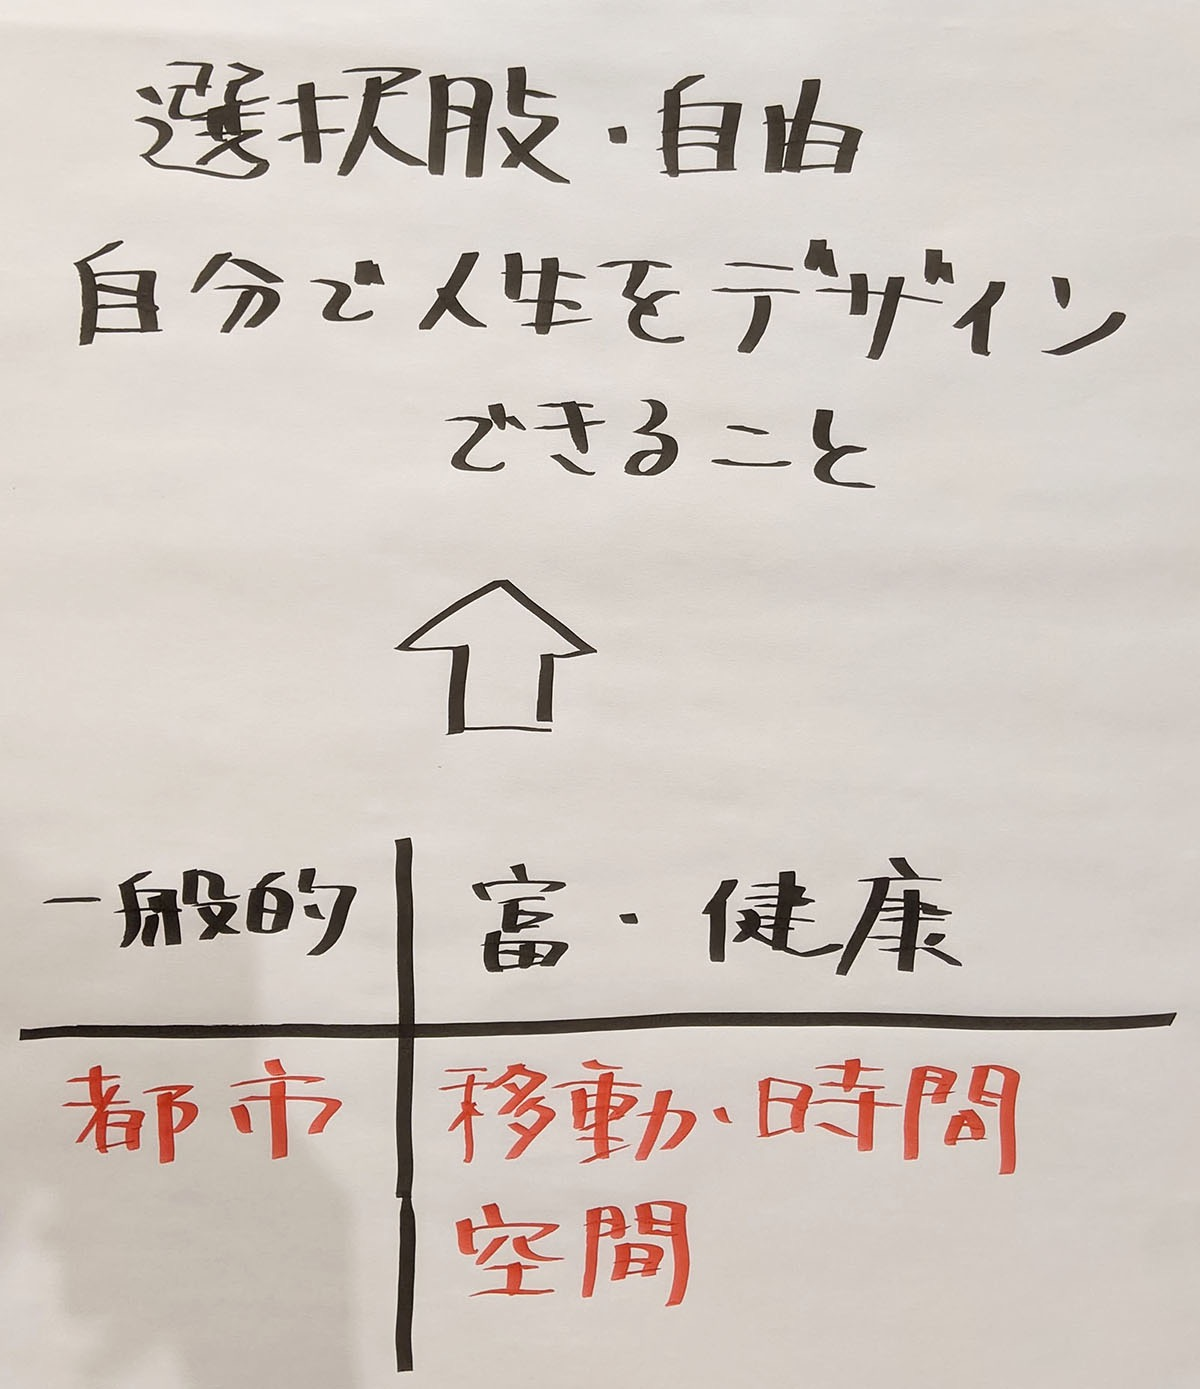 選択股・自由
自分で人生をデザイン
できること
一般的
富・健康
都市
移動、時間
空間